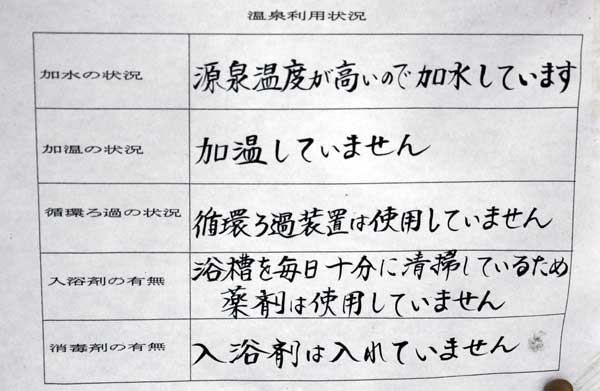 温泉利用状況
加水の状況
源泉温度が高いので加水しています
加温の状況
加温していません
循環ろ過の状況
循環ろ過装置は使用していません
入浴剤の有無
浴槽を毎日十分に清掃しているため
薬剤は使用していません
消毒剤の有無
入浴剤は入れていません